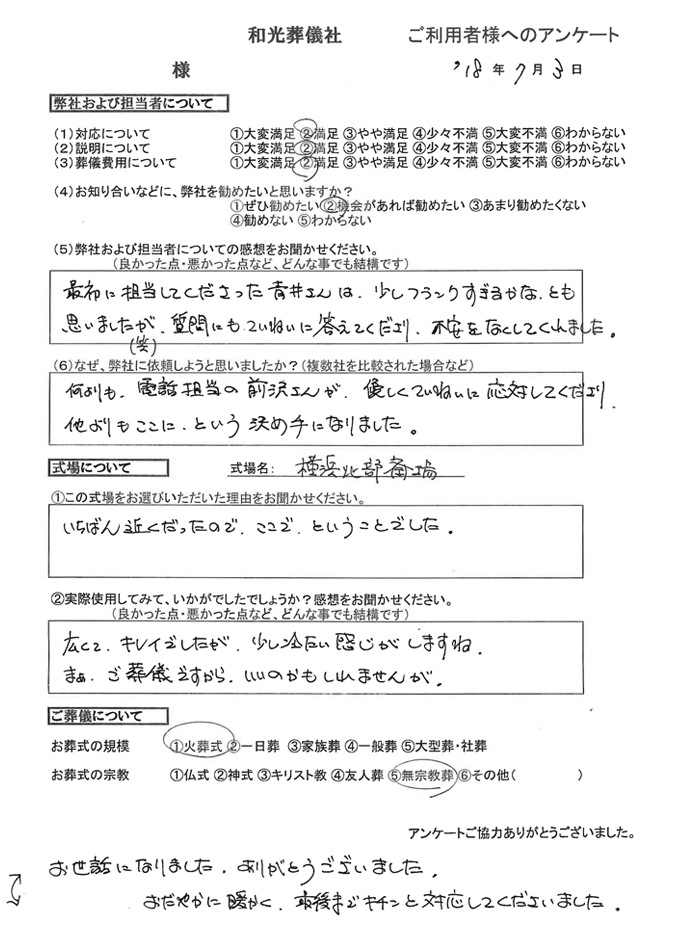 和光葬儀社 ご利用者様へのアンケート
様 '18年7月3日
弊社および担当者について
(1)対応について ①大変満足 ②満足 ③やや満足 ④少々不満 ⑤大変不満 ⑥わからない
(2)説明について ①大変満足 ②満足 ③やや満足 ④少々不満 ⑤大変不満 ⑥わからない
(3)葬儀費用について ①大変満足 ②満足 ③やや満足 ④少々不満 ⑤大変不満 ⑥わからない
(4)お知り合いなどに、弊社を勧めたいと思いますか？
①ぜひ勧めたい ②機会があれば勧めたい ③あまり勧めたくない
④勧めない ⑤わからない
(5)弊社および担当者についての感想をお聞かせください。
(良かった点・悪かった点など、どんな事でも結構です)
最初に担当してくださった青井さんは、少しフランクすぎるかな、とも
思いましたが、質問にもていねいに答えてくださり、不安をなくしてくれました。
(笑)
(6)なぜ、弊社に依頼しようと思いましたか？(複数社を比較された場合など)
何よりも、電話担当の前沢さんが、優しくていねいに応対してくださり、
他よりもここに、という決め手になりました。
式場について 式場名： 横浜北部斎場
①この式場をお選びいただいた理由をお聞かせください。
いちばん近くだったので、ここで、ということでした。
②実際使用してみて、いかがでしたでしょうか？感想をお聞かせください。
(良かった点・悪かった点など、どんな事でも結構です)
広くて、キレイでしたが、少し冷たい感じがしますね。
まぁ、ご葬儀ですから、いいのかもしれませんが。
ご葬儀について
お葬式の規模 ①火葬式 ②一日葬 ③家族葬 ④一般葬 ⑤大型葬・社葬
お葬式の宗教 ①仏式 ②神式 ③キリスト教 ④友人葬 ⑤無宗教葬 ⑥その他( )
アンケートご協力ありがとうございました。
お世話になりました。ありがとうございました。
おだやかに暖かく、最後までキチンと対応してくださいました。